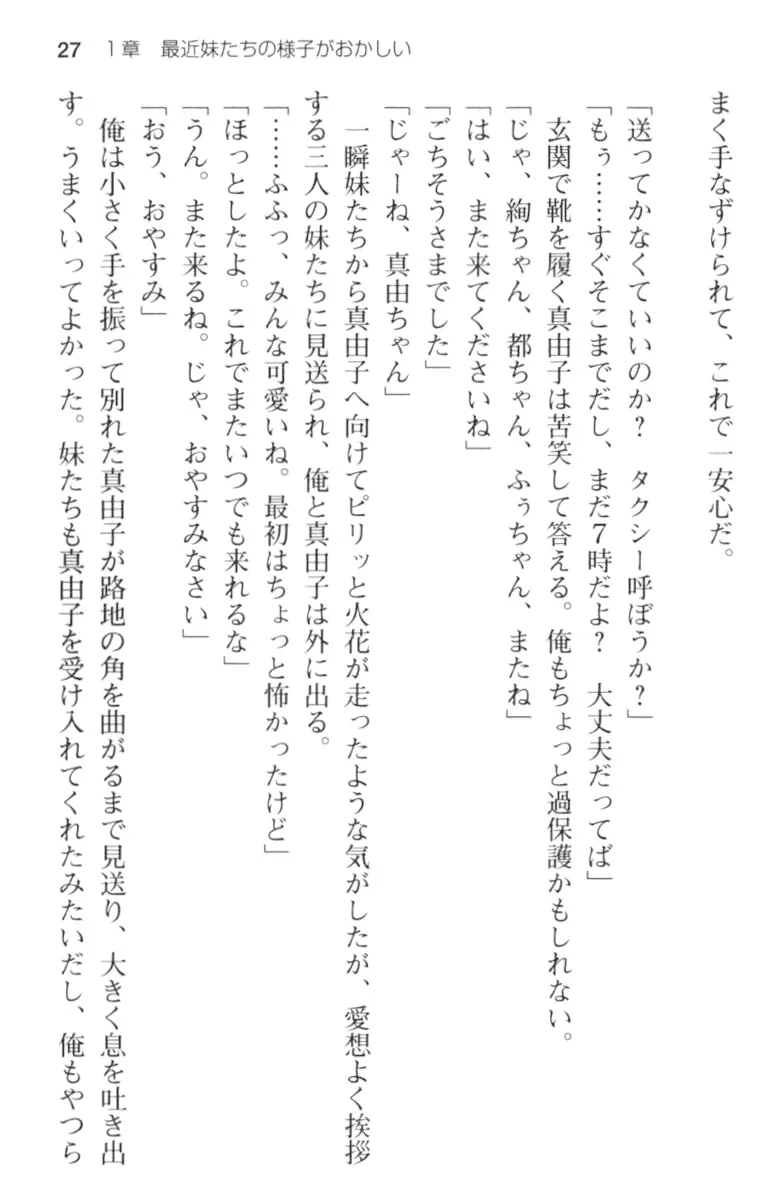 27　1章　最近妹たちの様子がおかしい
まく手なずけられて、これで一安心だ。
「送ってかなくていいのか？　タクシー呼ぼうか？」
「もぅ……すぐそこまでだし、まだ７時だよ？　大丈夫だってば」
　玄関で靴を履く真由子は苦笑して答える。俺もちょっと過保護かもしれない。
「じゃ、絢ちゃん、都ちゃん、ふぅちゃん、またね」
「はい、また来てくださいね」
「ごちそうさまでした」
「じゃーね、真由ちゃん」
　一瞬妹たちから真由子へ向けてピリッと火花が走ったような気がしたが、愛想よく挨拶
する三人の妹たちに見送られ、俺と真由子は外に出る。
「……ふふっ、みんな可愛いね。最初はちょっと怖かったけど」
「ほっとしたよ。これでまたいつでも来れるな」
「うん。また来るね。じゃ、おやすみなさい」
「おう、おやすみ」
　俺は小さく手を振って別れた真由子が路地の角を曲がるまで見送り、大きく息を吐き出
す。うまくいってよかった。妹たちも真由子を受け入れてくれたみたいだし、俺もやつら